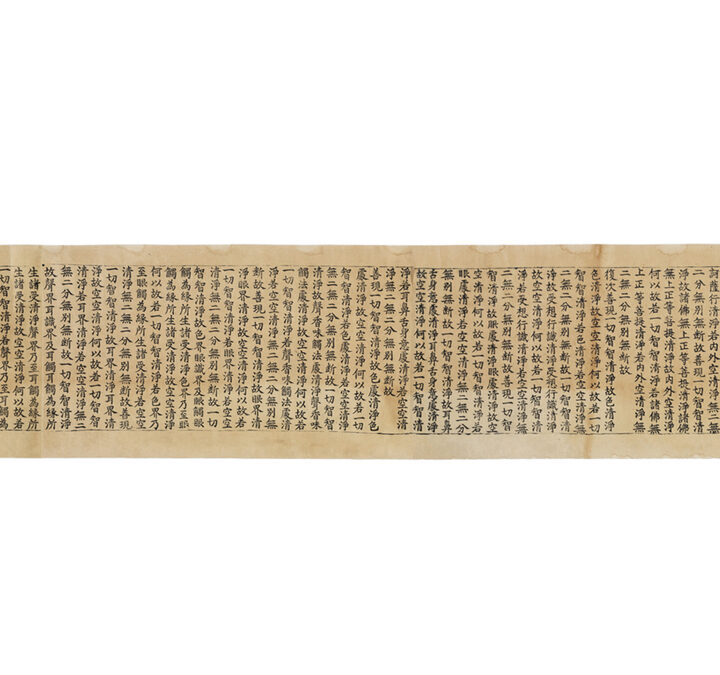 訶薩行清淨若內外空清淨無二無
二分無別無斷故善現一切智智清
淨故諸佛無上正等菩提清淨諸佛
無上正等菩提清淨故內外空清淨
何以故若一切智智清淨若諸佛無
上正等菩提清淨若內外空清淨無
二無二分無別無斷故
復次善現一切智智清淨故色清淨
色清淨故空空清淨何以故若一切
智智清淨若色清淨若空空清淨無
二無二分無別無斷故一切智智清
淨故受想行識清淨受想行識清淨
故空空清淨何以故若一切智智清
淨若受想行識清淨若空空清淨無
二無二分無別無斷故善現一切智
智清淨故眼處清淨眼處清淨故空
空清淨何以故若一切智智清淨若
眼處清淨若空空清淨無二無二分
無別無斷故一切智智清淨故耳鼻
舌身意處清淨耳鼻舌身意處清淨
故空空清淨何以故若一切智智清
淨若耳鼻舌身意處清淨若空空清
淨無二無二分無別無斷故
善現一切智智清淨故色處清淨色
處清淨故空空清淨何以故若一切
智智清淨若色處清淨若空空清淨
無二無二分無別無斷故一切智智
清淨故聲香味觸法處清淨聲香味
觸法處清淨故空空清淨何以故若
一切智智清淨若聲香味觸法處清
淨若空空清淨無二無二分無別無
斷故善現一切智智清淨故眼界清
淨眼界清淨故空空清淨何以故若
一切智智清淨若眼界清淨若空空
清淨無二無二分無別無斷故一切
智智清淨故色界眼識界及眼觸眼
觸為緣所生諸受清淨色界乃至眼
觸為緣所生諸受清淨故空空清淨
何以故若一切智智清淨若色界乃
至眼觸為緣所生諸受清淨若空空
清淨無二無二分無別無斷故善現
一切智智清淨故耳界清淨耳界清
淨故空空清淨何以故若一切智智
清淨若耳界清淨若空空清淨無二
無二分無別無斷故一切智智清淨
故聲界耳識界及耳觸耳觸為緣所
生諸受清淨聲界乃至耳觸為緣所
生諸受清淨故空空清淨何以故若
一切智智清淨若聲界乃至耳觸為